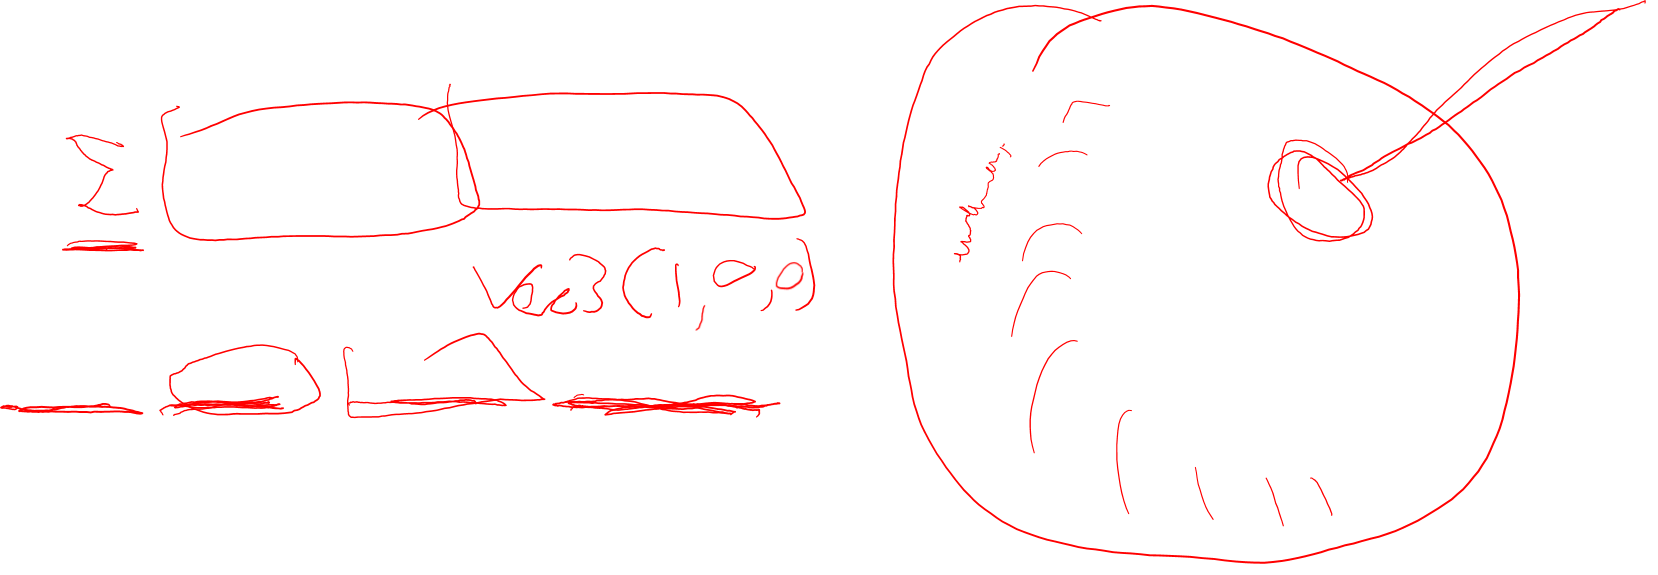 Σ
Vec3(1,0,0)